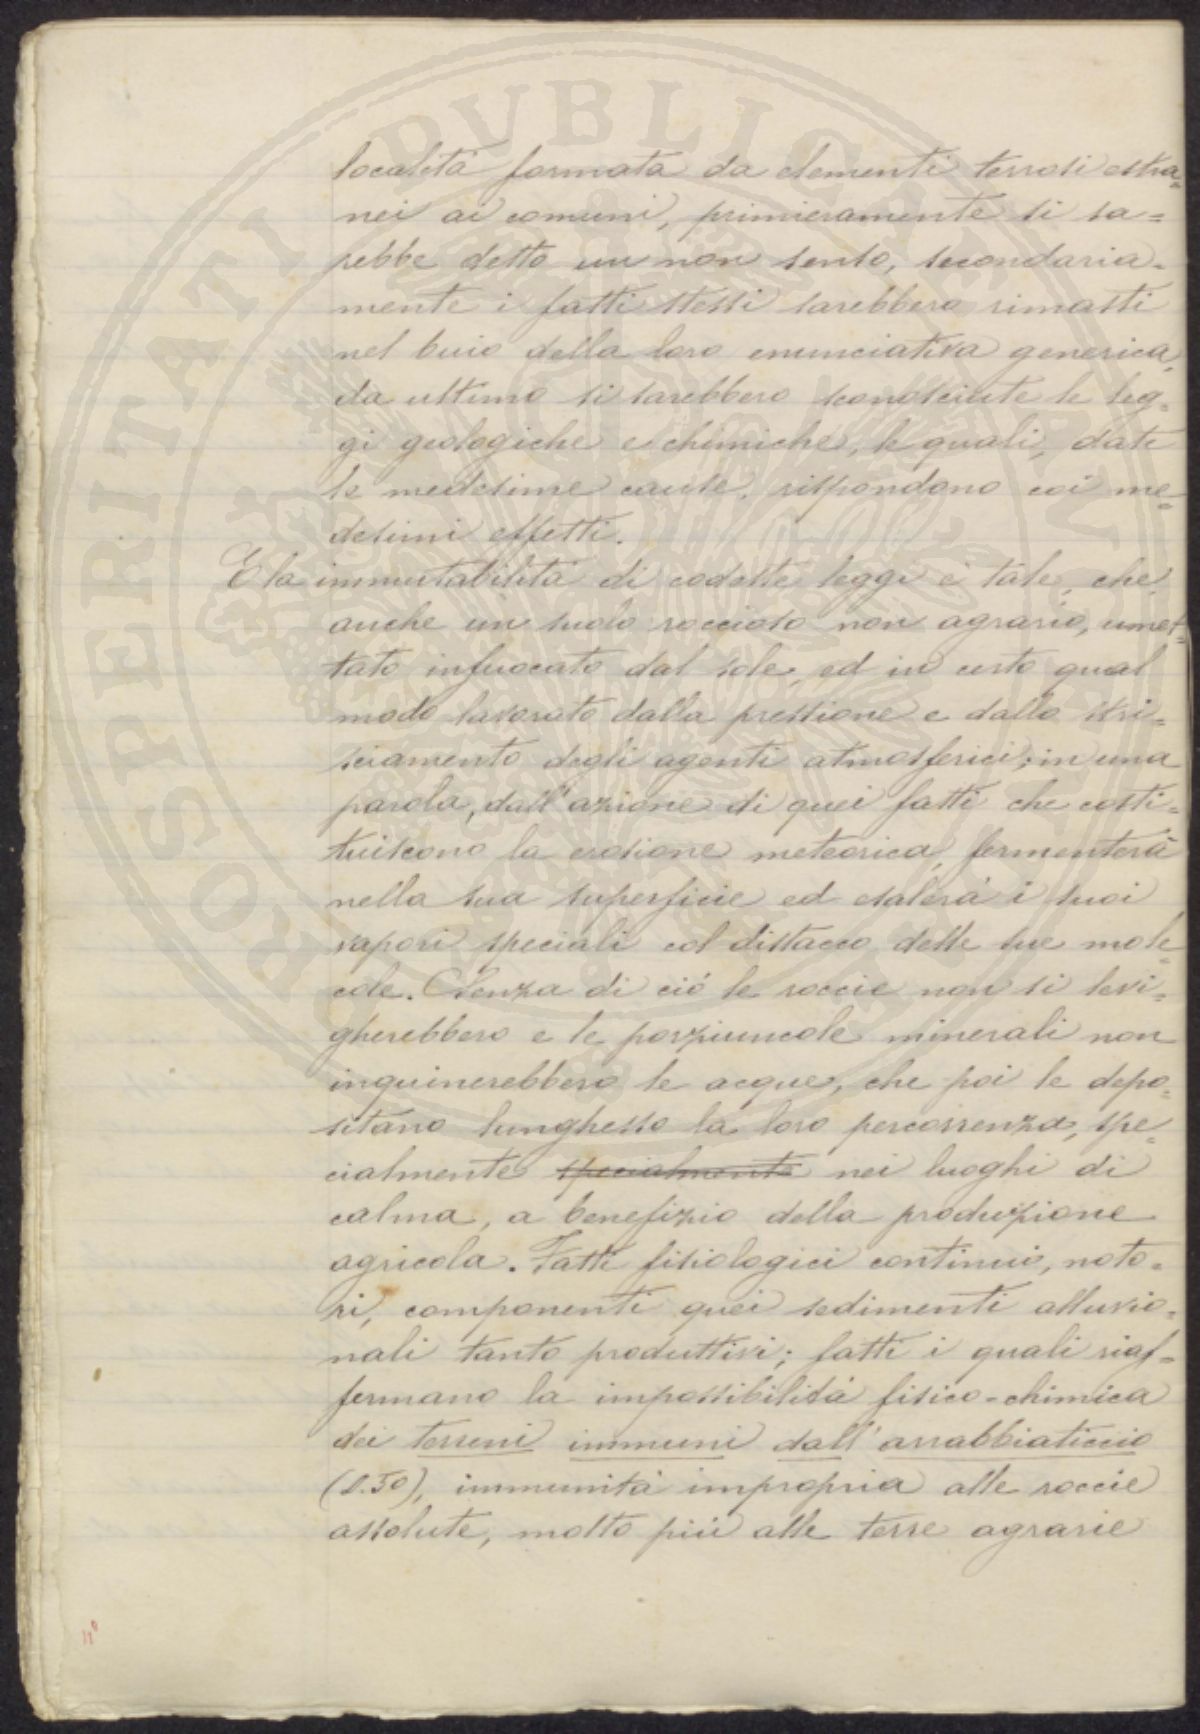 località formata da elementi terrosi estra=
nei ai comuni, primieramente si sa=
rebbe detto un non senso, secondaria=
mente i fatti stessi sarebbero rimasti
nel buio della loro enunciativa generica,
da ultimo si sarebbero sconosciute le leg=
gi geologiche e chimiche, le quali, date
le medesime cause, rispondono coi me=
desimi effetti.
E la immutabilità di codeste leggi è tale, che
anche un suolo roccioso non agrario, umet=
tato infuocato dal sole, ed in certo qual
modo lavorato dalla pressione e dallo stri=
sciamento degli agenti atmosferici; in una
parola, dall'azione di quei fatti che costi=
tuiscono la erosione meteorica, fermenterà
nella sua superficie ed esalerà i suoi
vapori speciali col distacco delle sue mole=
cole. Senza di ciò le roccie non si levi=
gherebbero e le porziuncole minerali non
inquinerebbero le acque, che poi le depo=
sitano lunghesso la loro percorrenza, spe=
cialmente specialmente nei luoghi di
calma, a benefizio della produzione
agricola. Fatti fisiologici continui, noto=
ri, componenti quei sedimenti alluvio=
nali tanto produttivi; fatti i quali riaf=
fermano la impossibilità fisico-chimica
dei terreni immuni dall'arrabbiaticcio
(§.50), immunità impropria alle roccie
assolute, molto più alle terre agrarie
PROSPERITATI PUBLICAE